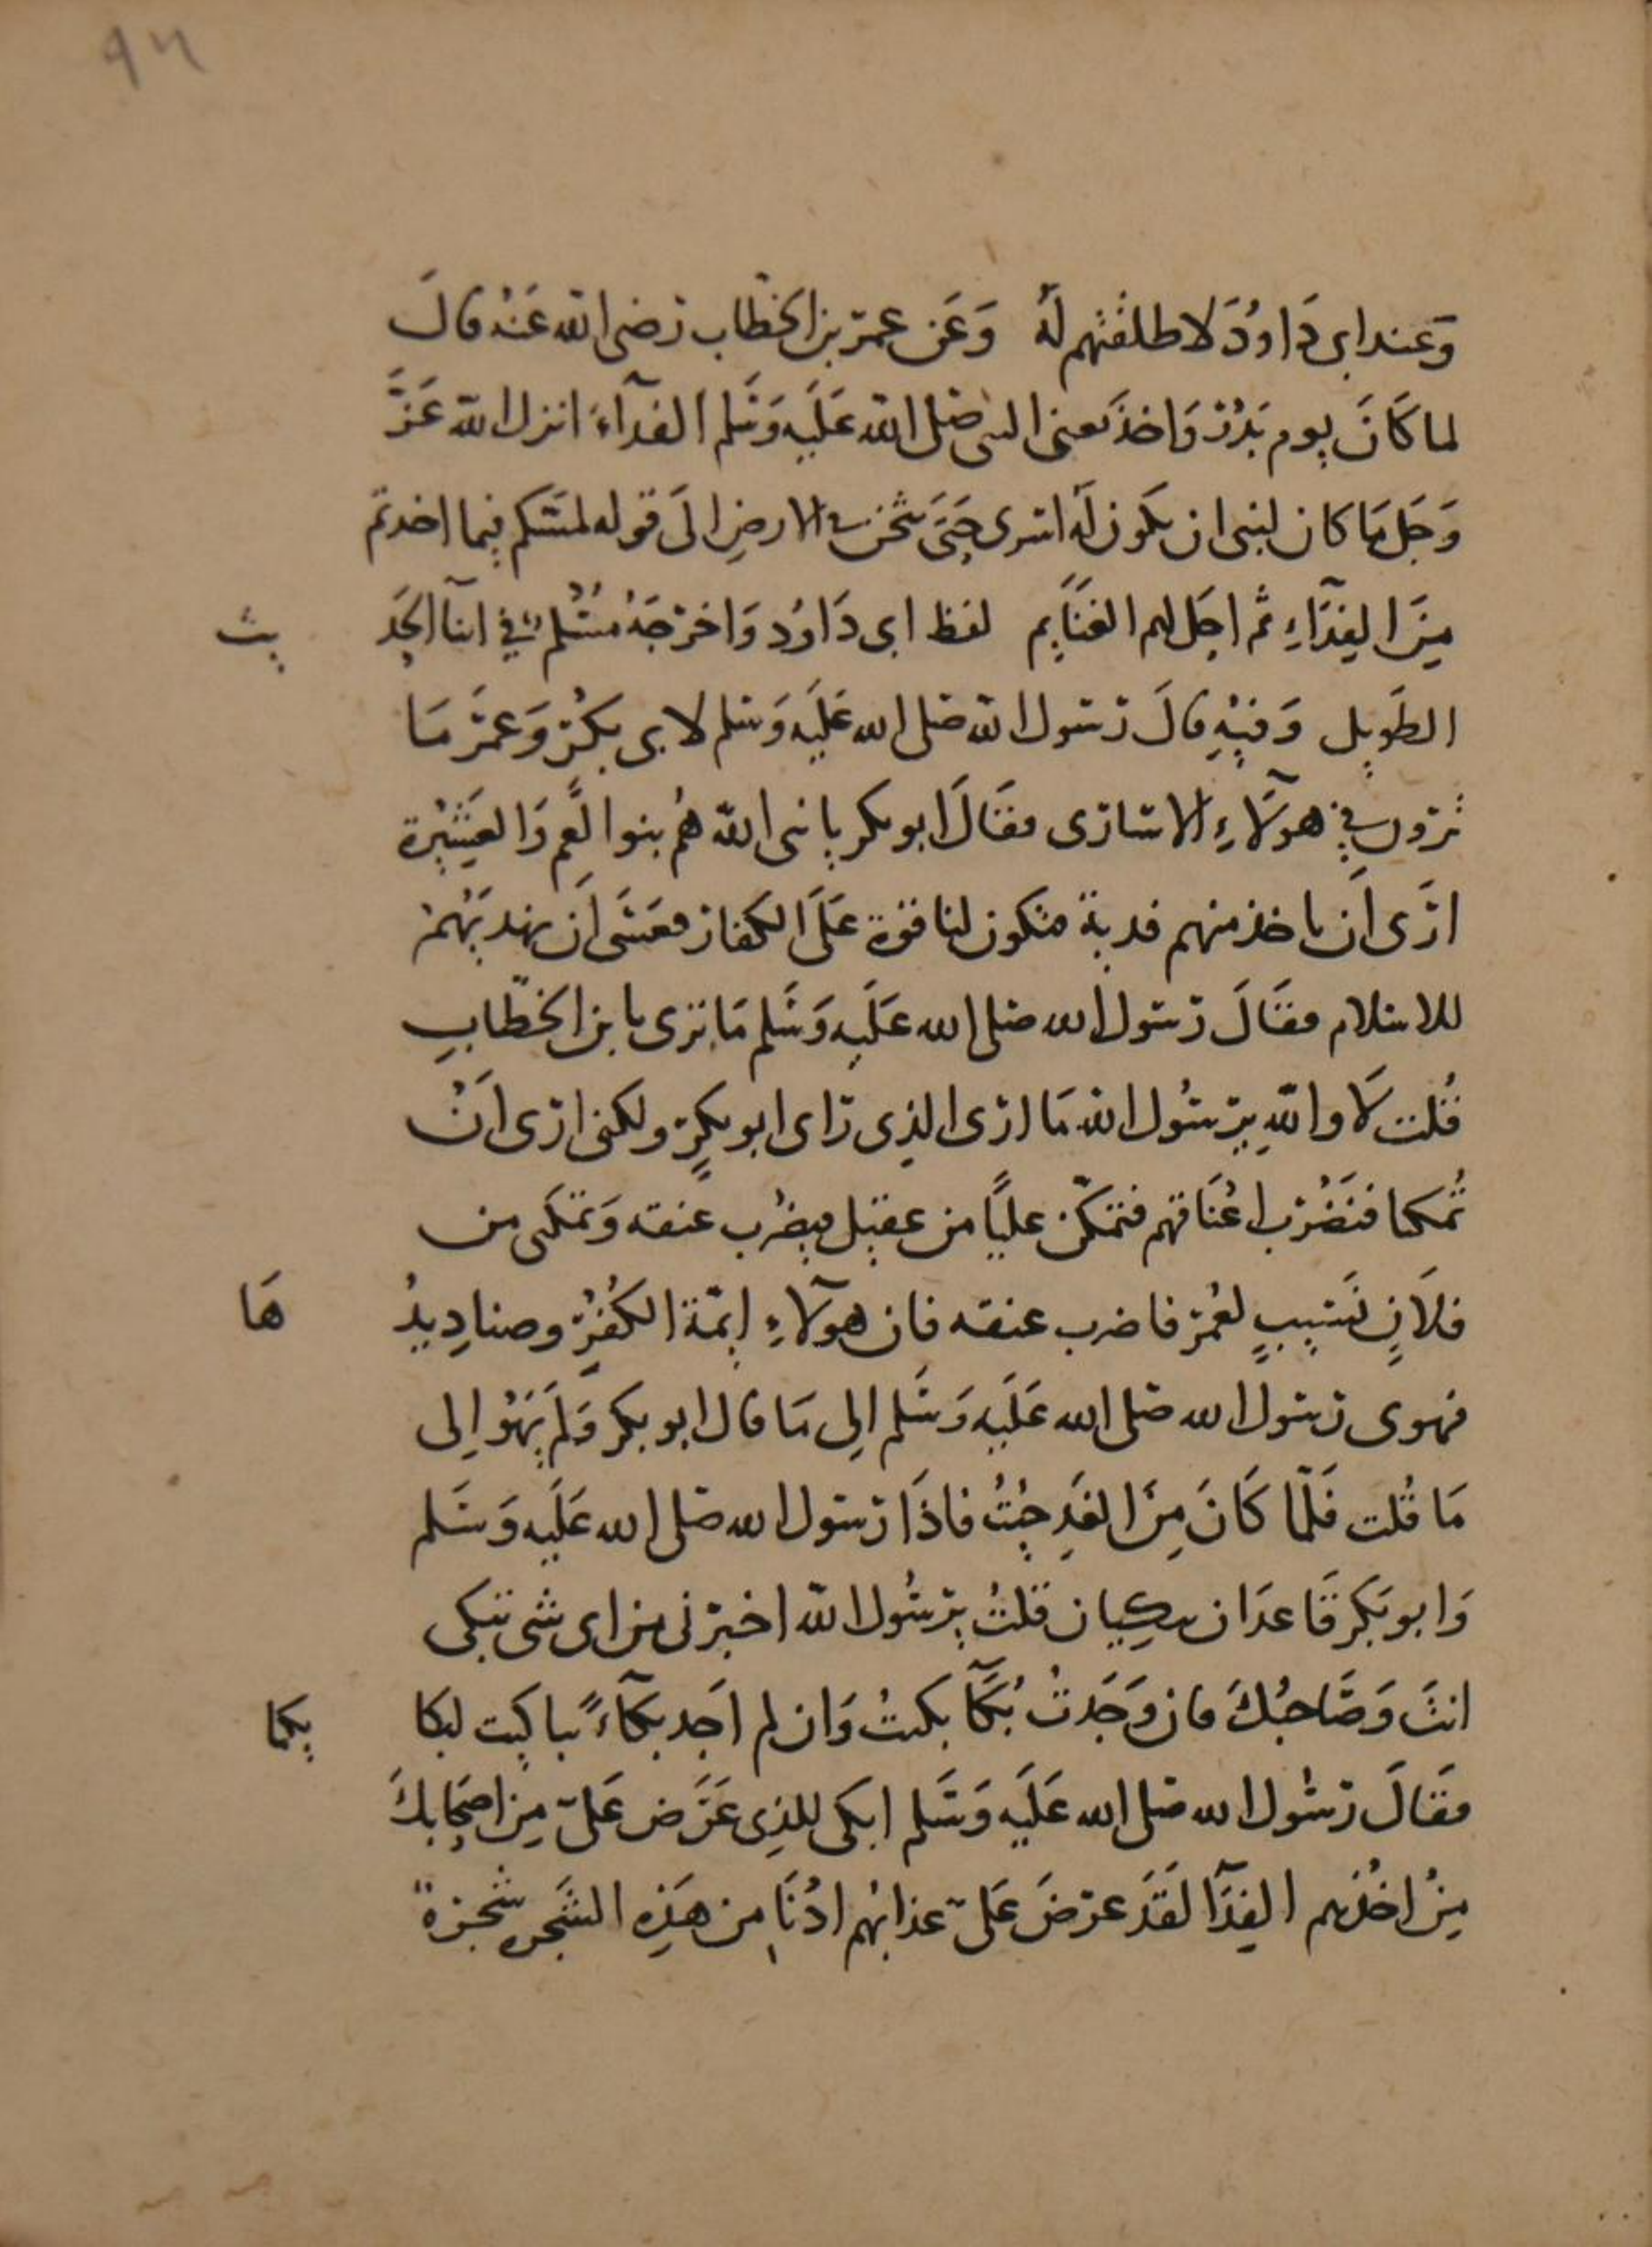 ٩٣
وَعند ابى دَاودَ لاطلقتهم لَهُ وَعَن عمر بن الخطاب رضى الله عَنْه قالَ
لما كَانَ يوم بَدْر وَاخذ يعنى النبى صَلى الله عَلَيهِ وَسَلم الفدآءَ انزل الله عَزَّ
وَجَل مَا كان لنبى ان يكون لَه اسرى حَتَّى يثخن فى الارضِ الَى قوله لمسّكم فيما اخدتم
مِنَ الفِدَآءِ ثم احل لهم الغَنَايم لفظ ابى دَاوُد وَاخرجَهُ مُسْلم فى اثنآ الحَد يث
الطَوِيل وَفيْهِ قالَ رَسول الله صَلى الله عَلَيهِ وَسَلم لابى بكرْ وَعمَر مَا
ترون فى هوَلآءِ الاسَارى فقَالَ ابو بكر يا نبى الله هُم بنوا لَعِم وَالعَشِيْرة
ارَى اَن ناخذ منهم فدية فتكون لنا قوة عَلَى الكفار فعَسَى اَن يهديَهُمْ
للاسلام فقَالَ رَسول الله صلى الله عَلَيهِ وَسَلم مَا ترى يا بن الخطّابِ
قُلت لَا واللهِ يرَسُول الله مَا ارى الذِى رَاى ابو بكرٍ ولكنى ارى اَنْ
تُمكنا فنَضْرب اعْنَاقهم فتمكّن عليًا من عقيل فيضْرب عنقه وَتمكنى من
فلَانٍ نَسِيبٍ لعُمرَ فاضرب عنقه فان هوَلآءِ ايمّة الكُفْرِ وصنادِيدُ هَا
فهوى رَسول الله صَلى الله عَلَيهِ وَسَلم الِى مَا قال ابو بكر وَلَم يَهْوَ الِى
مَا قُلت فَلَمّا كَانَ مِنَ الغَدِ جِئتُ فاذَا رَسول الله صَلى الله عَلَيهِ وَسَلم
وَابو بَكر قَاعدَان يبكِيان قلتُ يرَسُول اللّه اخبرَنى من اى شى تبكى
انتَ وَصَاحبُكَ فان وَجَدتُ بُكَآ بكيتُ وَان لم اَجد بكآءً تباكيت لبكا يكما
فقَالَ رَسُول الله صَلى الله عَلَيهِ وَسَلم ابكى للذِى عَرَض عَلىّ مِن اصحَابكَ
مِنْ اخْذهم الفِدَآ لقَدَ عرضَ عَلىّ عذابهُم ادْنَا من هَذِهِ الشَجره شجرة